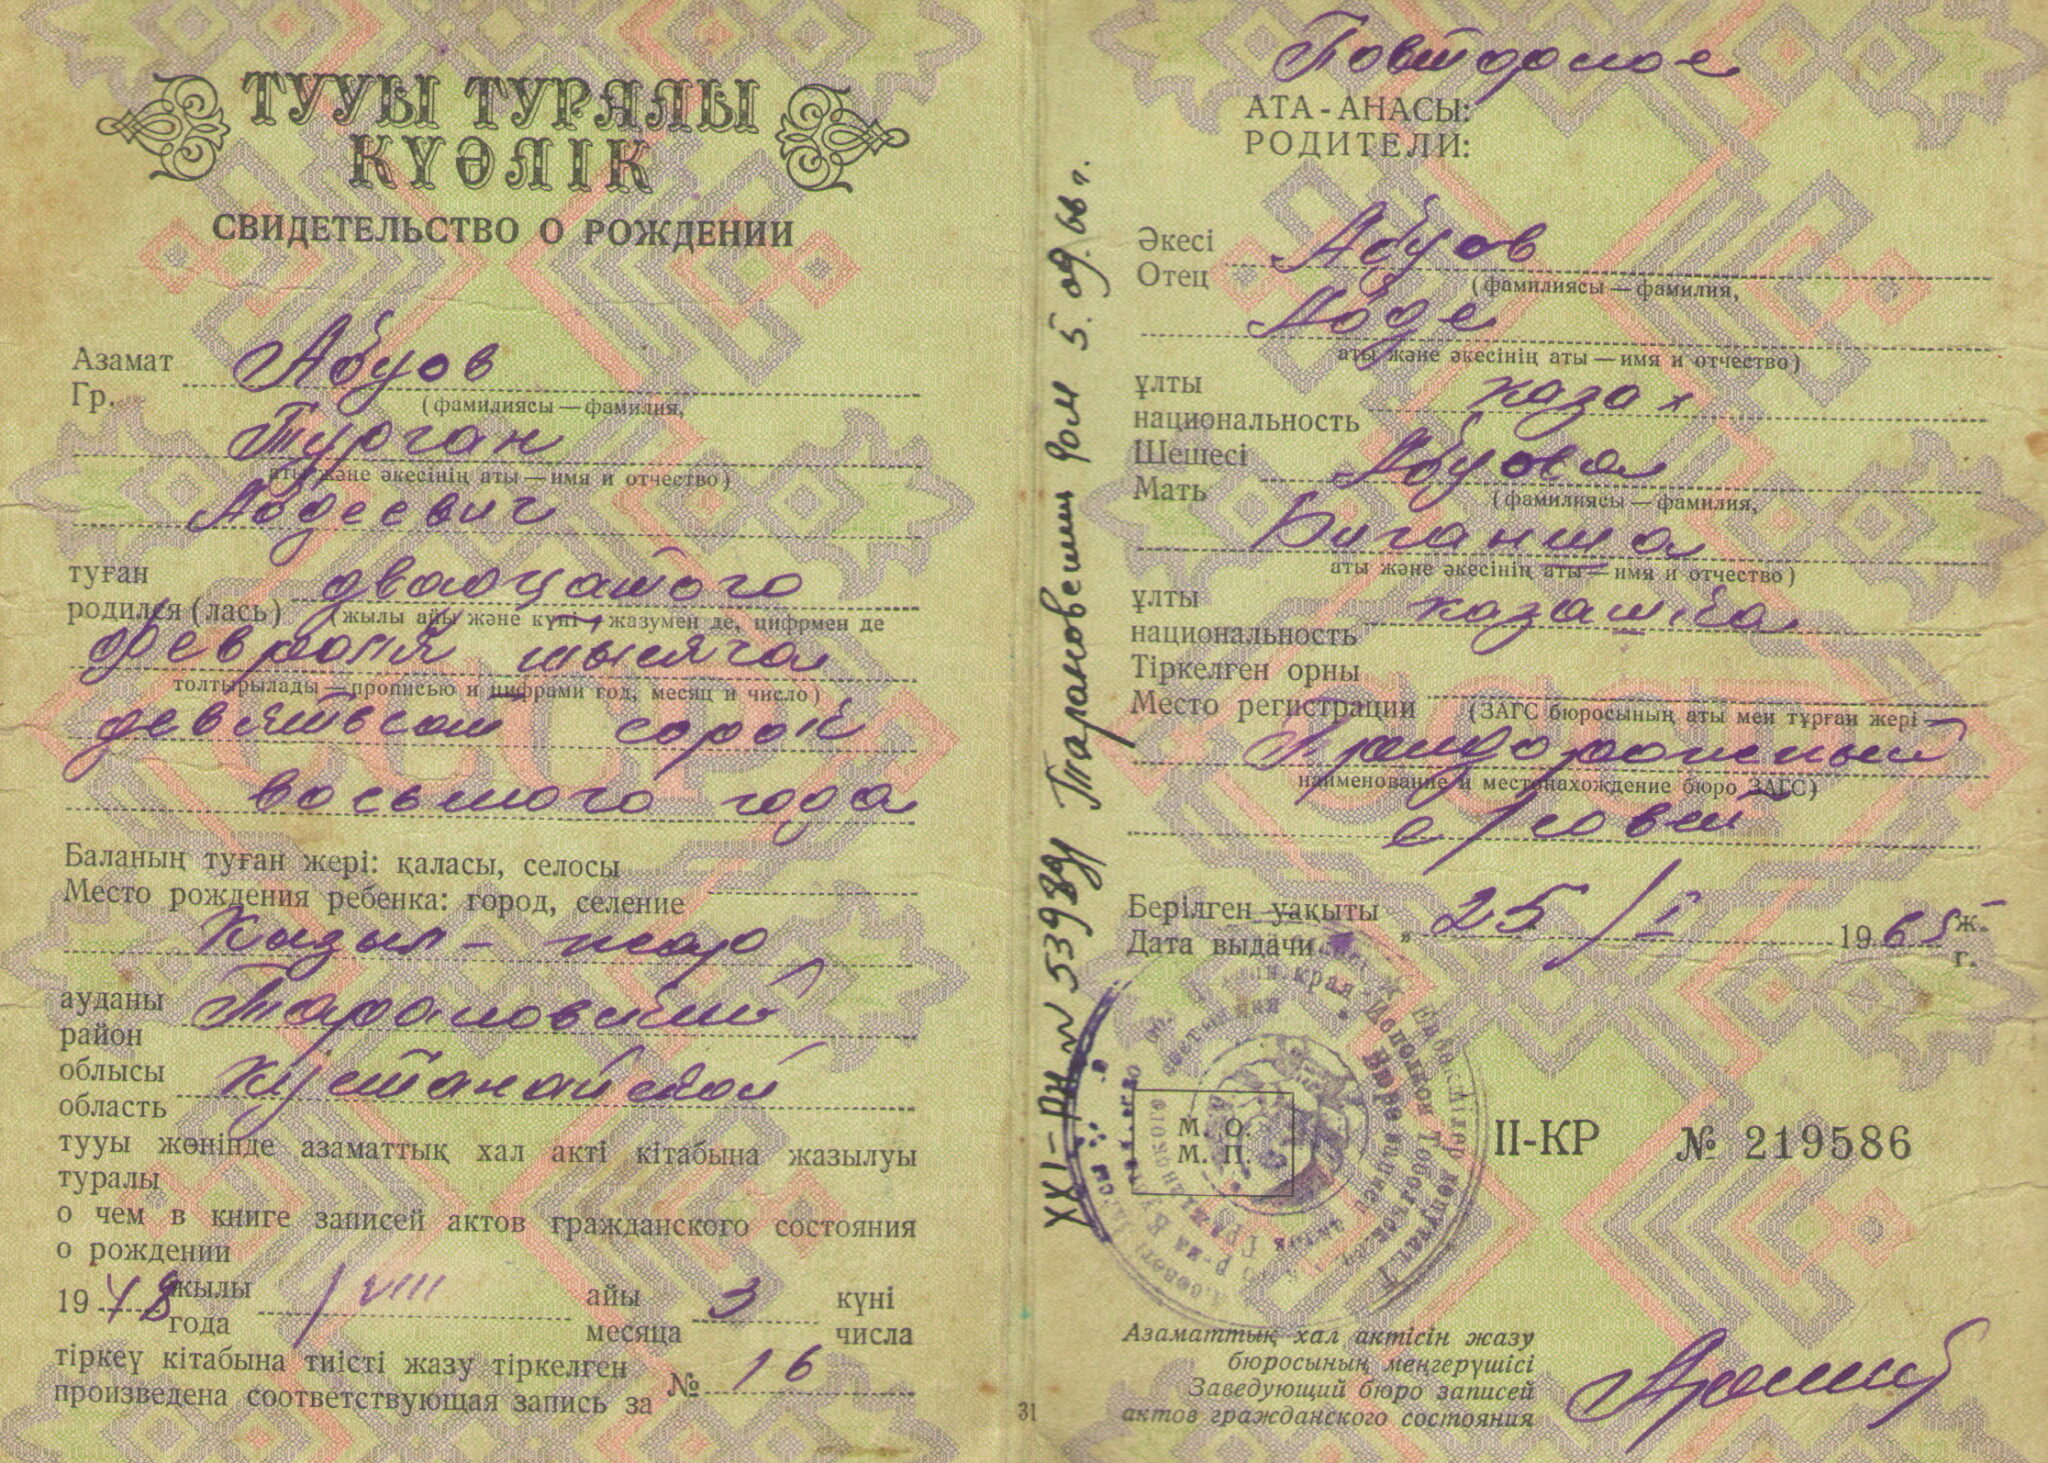 ТУУЫ ТУРАЛЫ
КУӘЛІК
СВИДЕТЕЛЬСТВО О РОЖДЕНИИ
Азамат
Гр. Абуов
(фамилиясы — фамилия,
Турган
аты және әкесінің аты — имя и отчество)
Авдеевич
туған
родился (лась) двадцатого
(жылы айы және күні — жазумен де, цифрмен де
февраля тысяча
толтырылады — прописью и цифрами год, месяц и число)
девятьсот сорок
восьмого года
Баланың туған жері: қаласы, селосы
Место рождения ребенка: город, селение
Кызыл-жар
ауданы
район Тарановский
облысы
область Кустанайской
тууы жөнінде азаматтық хал акті кітабына жазылуы
туралы
о чем в книге записей актов гражданского состояния
о рождении
19 48 жылы
года VIII айы
месяца 3 күні
числа
тіркеу кітабына тиісті жазу тіркелген
произведена соответствующая запись за № 16
31
XXI-РН № 539897 5.09.66 г.
Повторное
АТА-АНАСЫ:
РОДИТЕЛИ:
Әкесі
Отец Абуов
(фамилиясы — фамилия,
Авде
аты және әкесінің аты — имя и отчество)
ұлты
национальность казах
Шешесі
Мать Абуова
(фамилиясы — фамилия,
Биганша
аты және әкесінің аты — имя и отчество)
ұлты
национальность казашка
Тіркелген орны
Место регистрации
(ЗАГС бюросының аты мен тұрған жері —
Придорожный
наименование и местонахождение бюро ЗАГС)
с/совет
Берілген уақыты
Дата выдачи „ 25 / I 1965 ж.
г.
М. О.
М. П.
II-КР № 219586
Азаматтық хал актісін жазу
бюросының меңгерушісі
Заведующий бюро записей
актов гражданского состояния